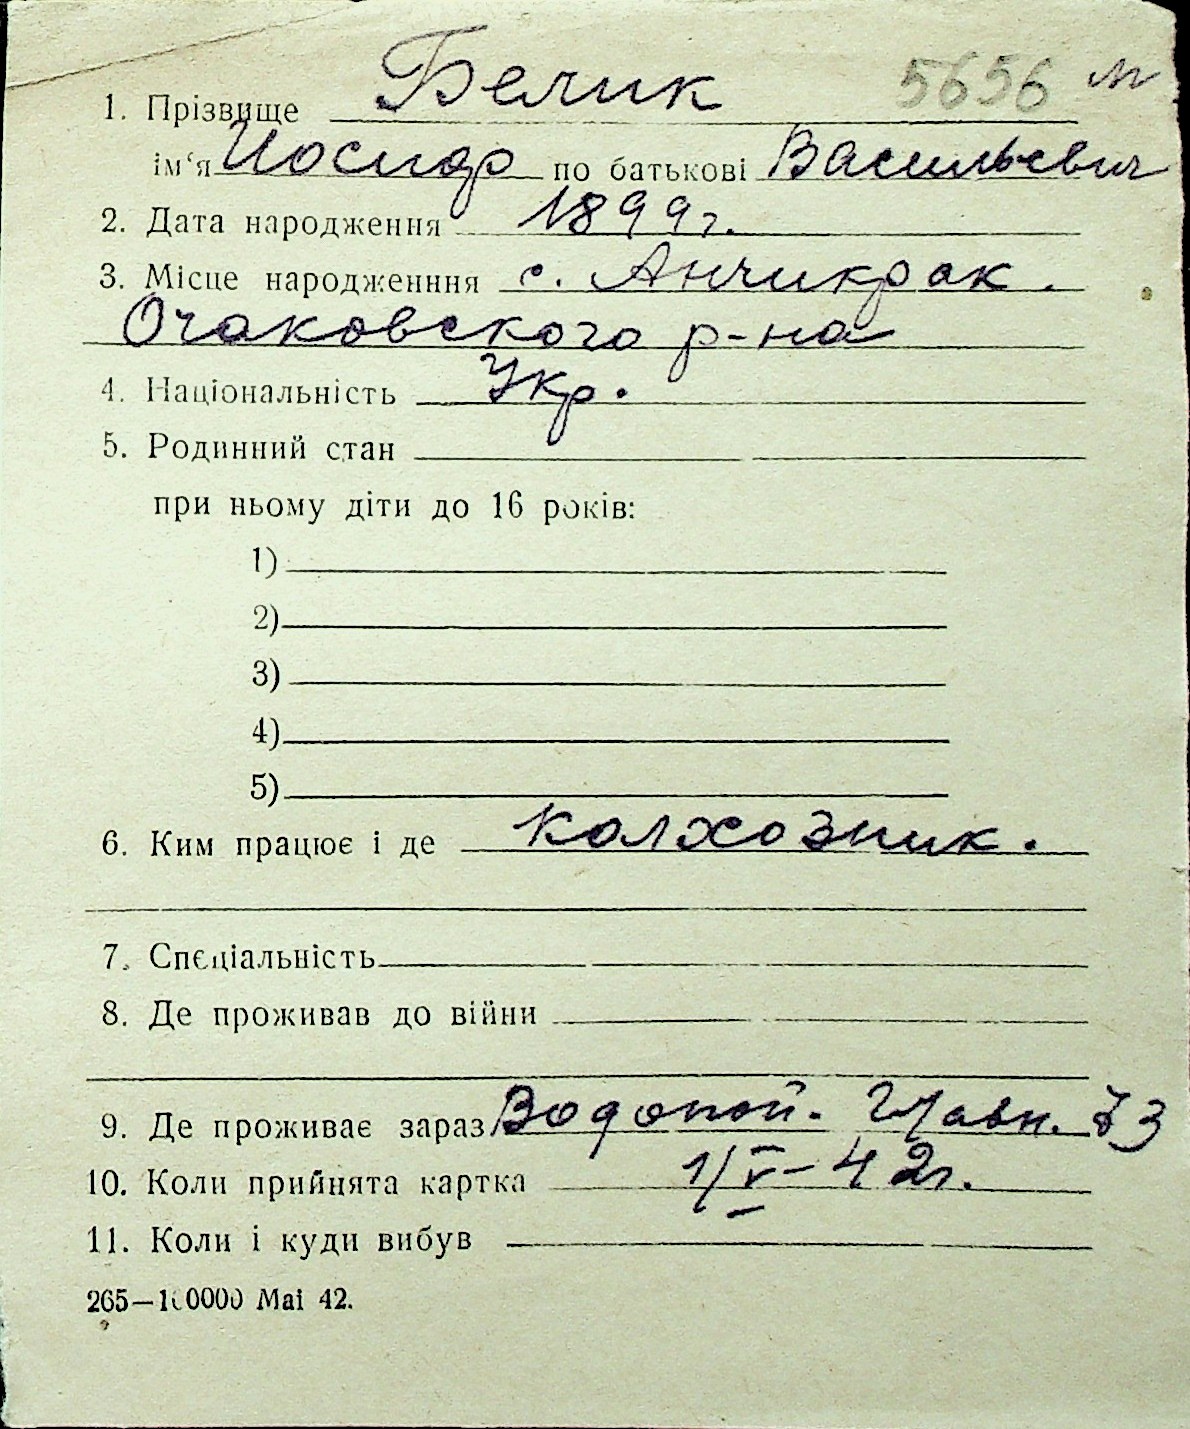 5656 м
1. Прізвище Белик
ім'я Иосиф по батькові Васильевич
2. Дата народження 1899 г.
3. Місце народженння с. Анчикрак.
Очаковского р-на
4. Національність Укр.
5. Родинний стан
при ньому діти до 16 років:
1)
2)
3)
4)
5)
6. Ким працює і де колхозник.
7. Спєціальність
8. Де проживав до війни
9. Де проживає зараз Водопой. Главн. 73
10. Коли прийнята картка 1/V-42г.
11. Коли і куди вибув
265—100000 Mai 42.